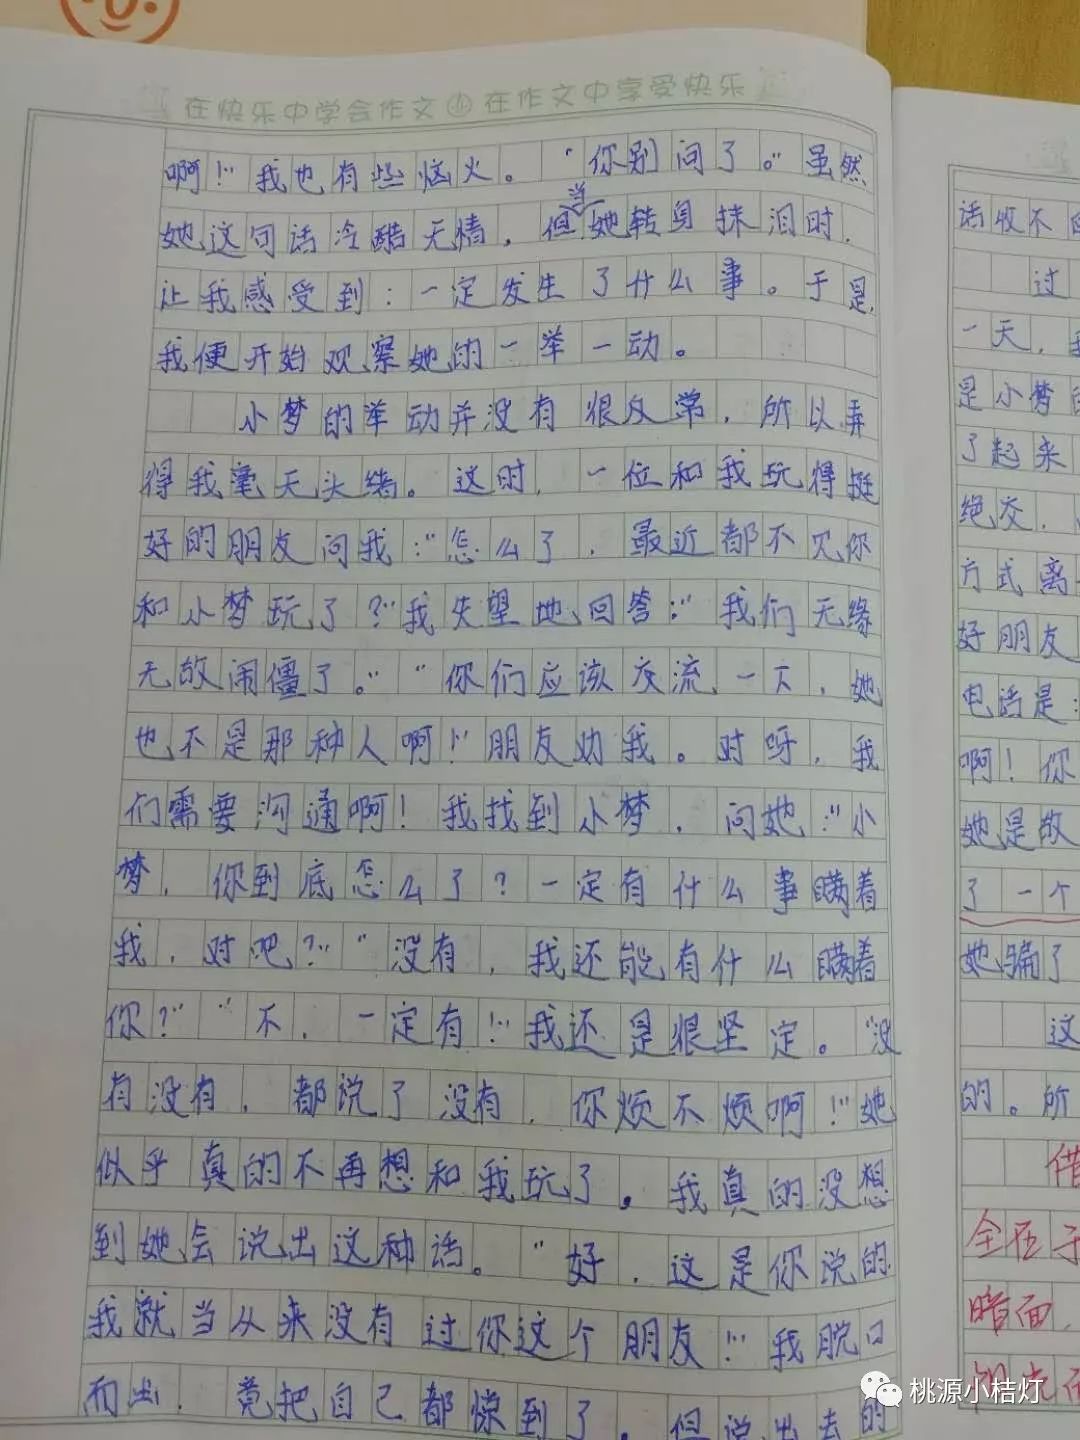 在快乐中学会作文 在作文中享受快乐
啊！”我也有些恼火。“你别问了。”虽然
她这句话冷酷无情，但当她转身抹泪时，
让我感受到：一定发生了什么事。于是，
我便开始观察她的一举一动。
小梦的举动并没有很反常，所以弄
得我毫无头绪。这时，一位和我玩得挺
好的朋友问我：“怎么了，最近都不见你
和小梦玩了？”我失望地回答：“我们无缘
无故闹僵了。”“你们应该交流一下，她
也不是那种人啊！”朋友劝我。对呀，我
们需要沟通啊！我找到小梦，问她：“小
梦，你到底怎么了？一定有什么事瞒着
我，对吧？”“没有，我还能有什么瞒着
你？”“不，一定有！”我还是很坚定。“没
有没有，都说了没有，你烦不烦啊！”她
似乎真的不再想和我玩了。我真的没想
到她会说出这种话。“好，这是你说的
我就当从来没有过你这个朋友！”我脱口
而出，竟把自己都惊到了。但说出去的
话收不
过
一天，
是小梦
了起来
绝交，
方式离
好朋友
电话是：
啊！你
她是故
了一个
她骗了
这
的。所
借
全在于
暗面，
桃源小桔灯